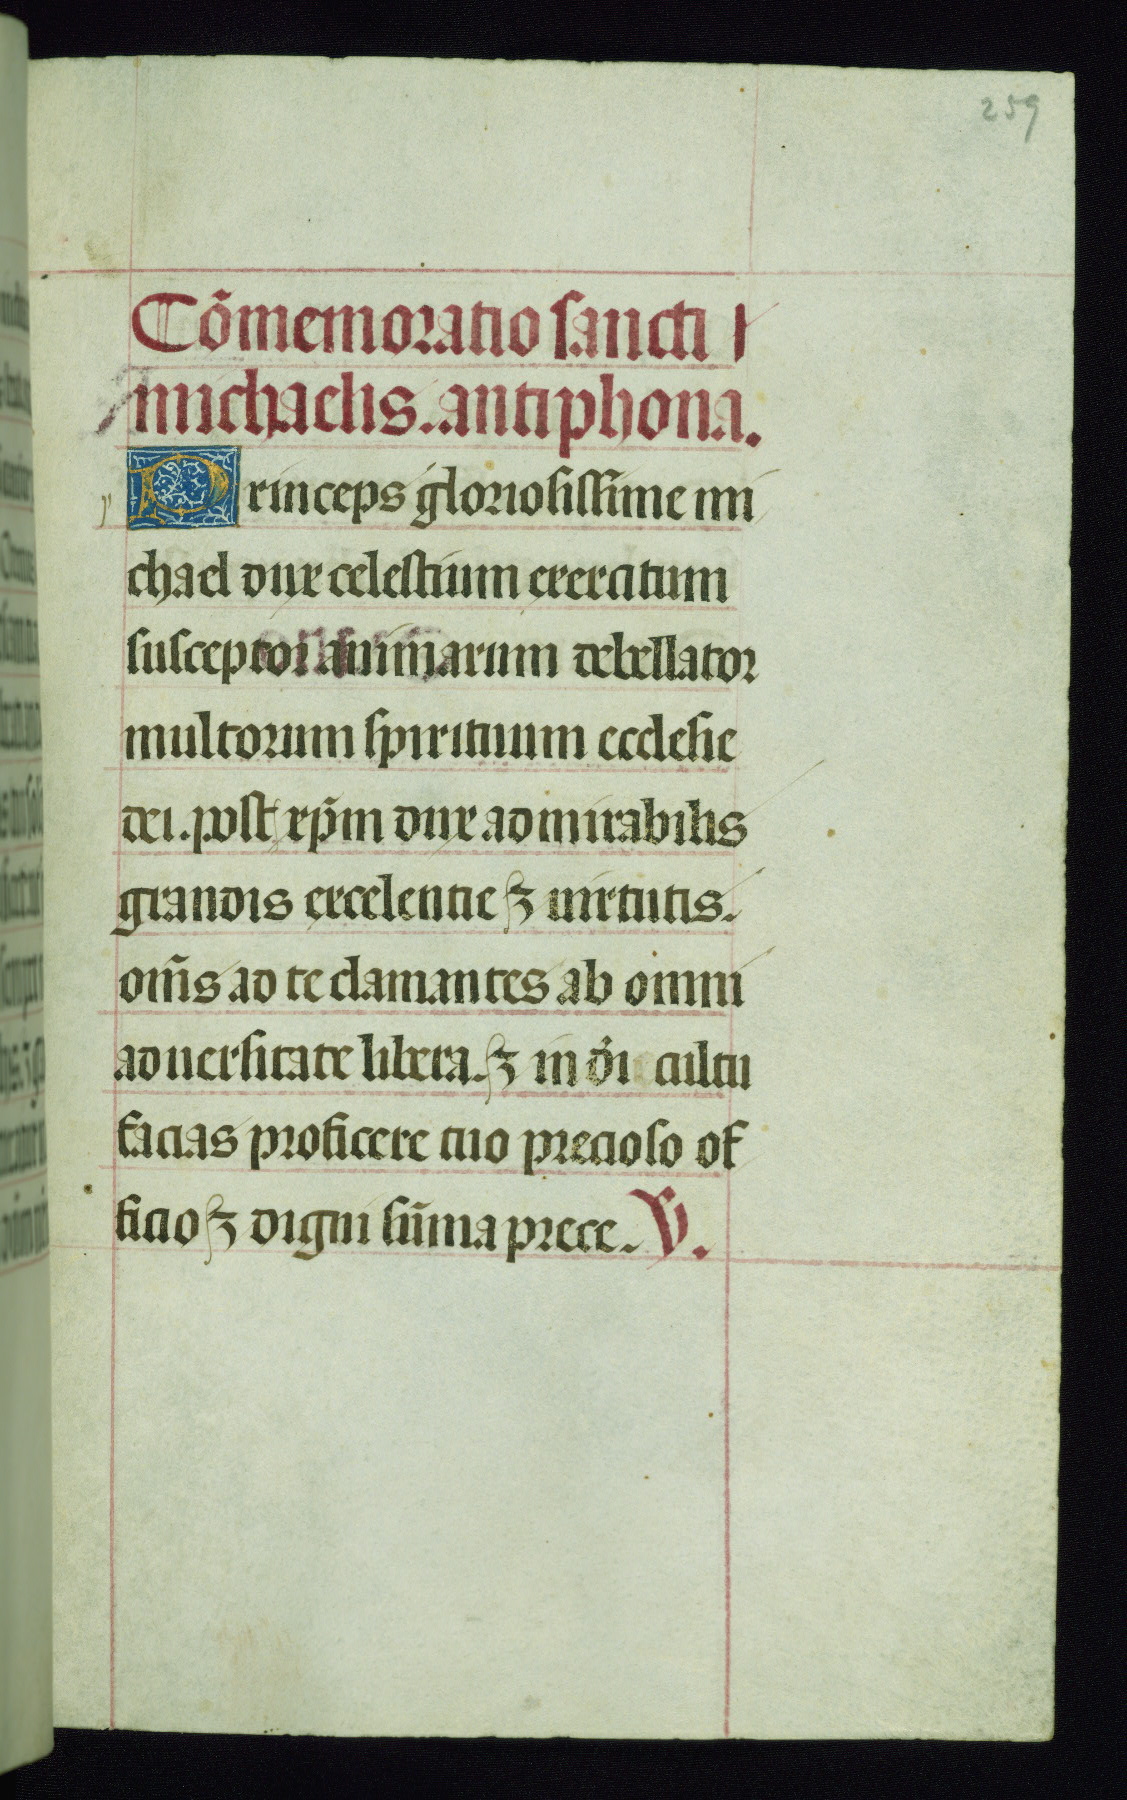 259
Cõmemoratio sancti
michaelis. antiphona.
Princeps gloriosissime mi
chael dux celestium exercituum
susceptor animarum debellator
multorum spirituum ecclesie
dei. post xp̃m dux admirabilis
grandis excelentie ⁊ uirtutis.
om̃s ad te clamantes ab omni
aduersitate libera. ⁊ in d̃i cultu
facias proficere tuo precioso of
ficio ⁊ digni sũma prece. V.